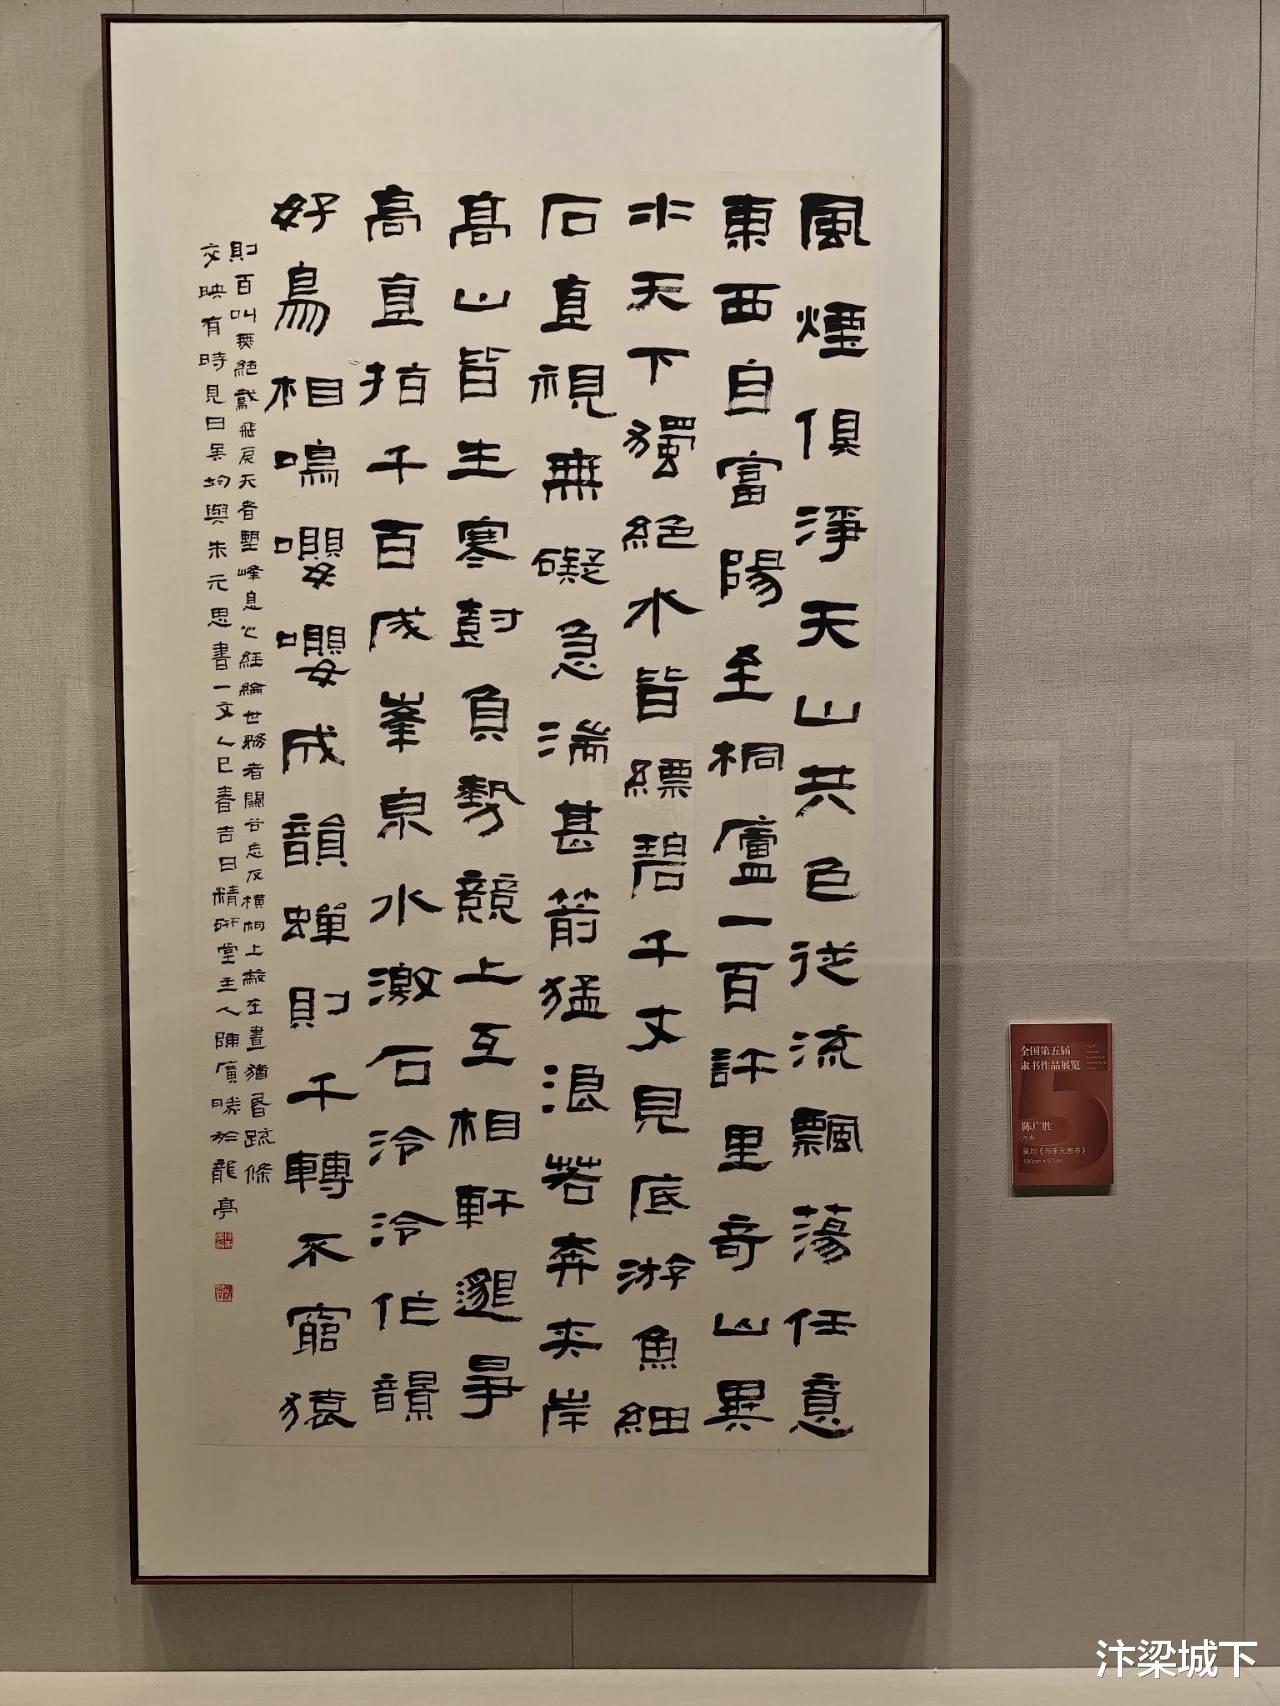 風煙俱淨天山共色從流飄蕩任意
東西自富陽至桐廬一百許里奇山異
水天下獨絕水皆縹碧千丈見底游魚細
石直視無礙急湍甚箭猛浪若奔夾岸
高山皆生寒樹負勢競上互相軒邈爭
高直指千百成峯泉水激石泠泠作韻
好鳥相鳴嚶嚶成韻蟬則千轉不窮猿
則百叫無絕鳶飛戾天者望峰息心經綸世務者闚谷忘反橫柯上蔽在晝猶昏疏條
交映有時見日吳均與朱元思書一文乙巳春吉日精研堂主人陳廣勝於龍亭
全国第五届
隶书作品展览
陈广胜
河南
吴均《与朱元思书》
汴梁城下